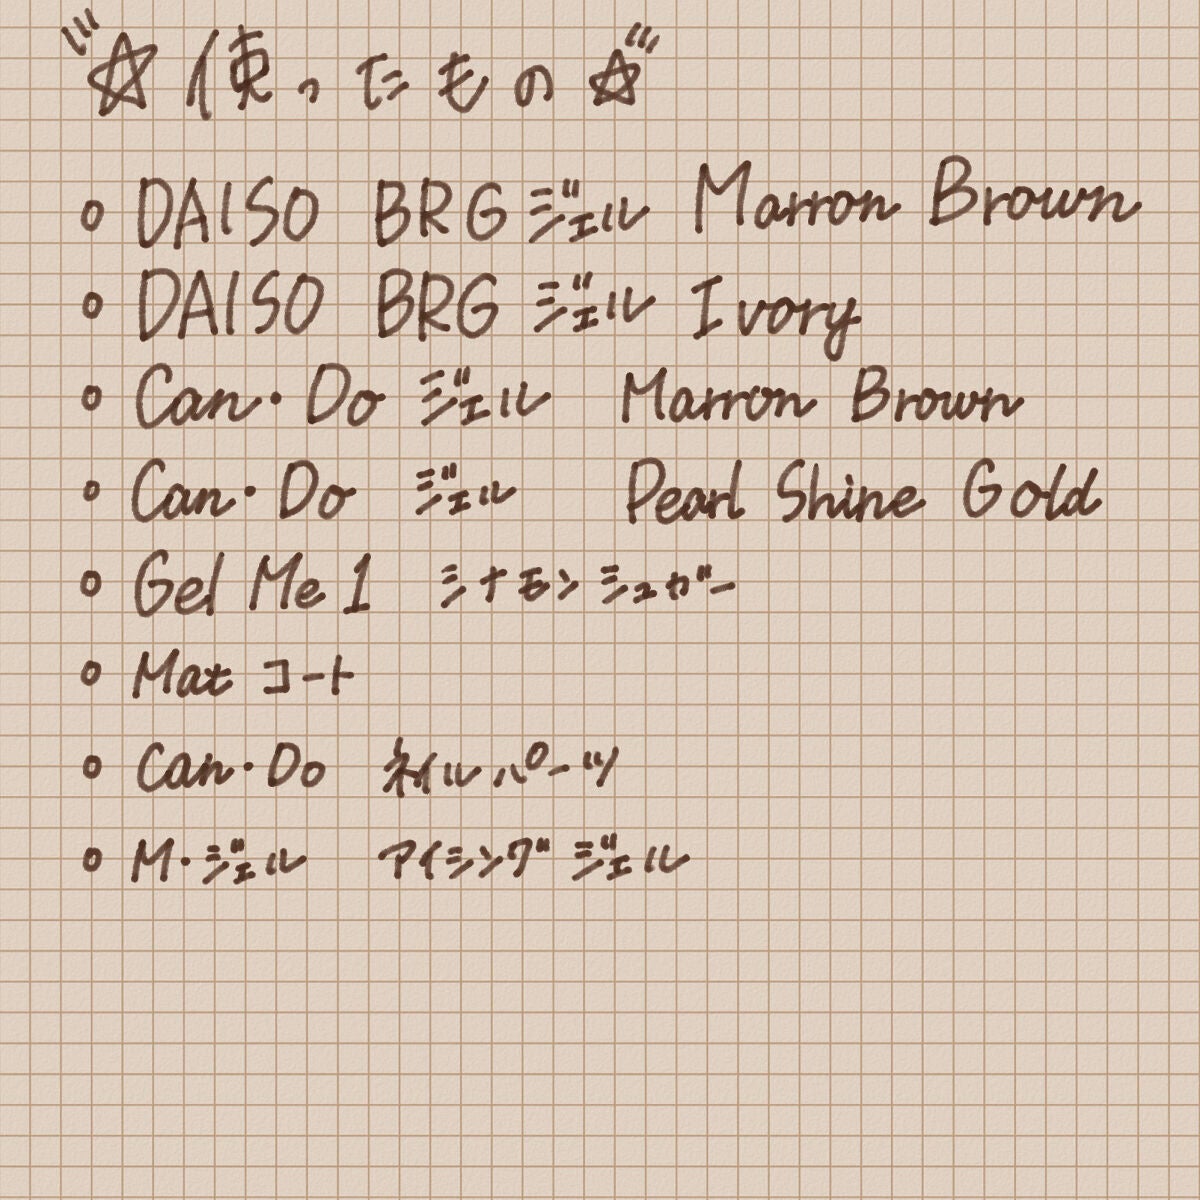 ☆使ったもの☆
○ DAISO BRG ジェル Marron Brown
○ DAISO BRG ジェル Ivory
○ Can・Do ジェル Marron Brown
○ Can・Do ジェル Pearl Shine Gold
○ Gel Me 1 シナモンシュガー
○ Mat コート
○ Can・Do ネイルパーツ
○ M・ジェル アイシングジェル